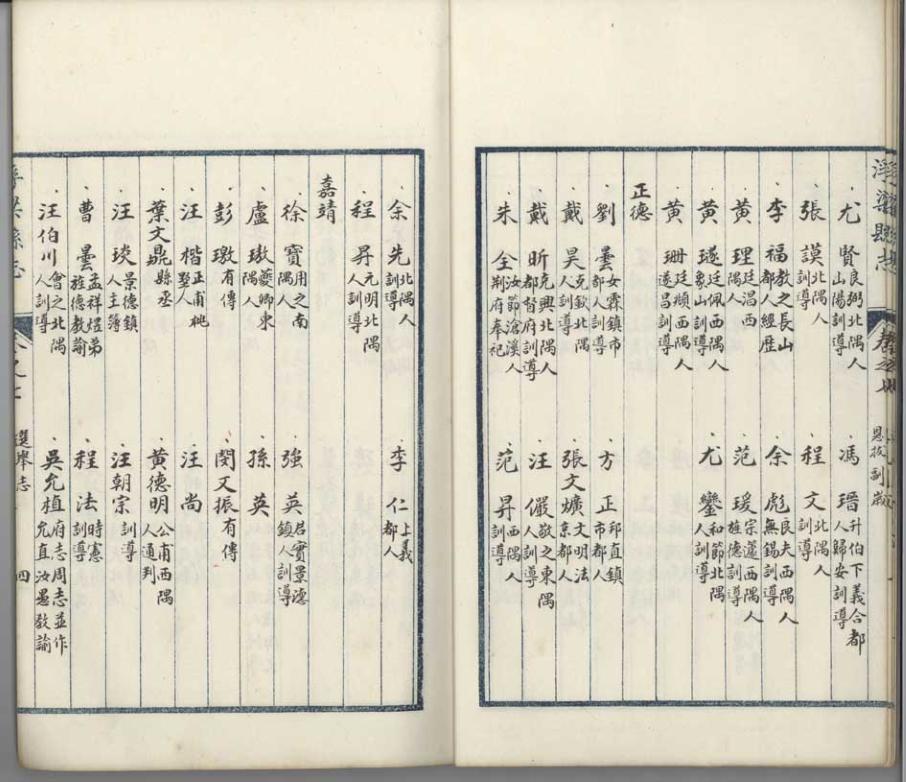 浮梁縣志
恩拔副歲
尤賢 良弼北隅人山陽訓導 馮瑨 升伯下義合都人歸安訓導
張謨 北隅人訓導 程文 北隅人訓導
李福 教之長山都人經歷 余彪 良夫西隅人無錫訓導
黃理 廷溫西隅人 范瑗 宗蘧西隅人旌德訓導
黃璲 廷佩西隅人象山訓導 尤鑾 和節北隅人訓導
黃珊 西隅人遂昌訓導
正德
劉曇 女霖鎮市都人訓導 方正 邱直鎮市都人
戴昊 克欽北隅人訓導 張文爌 文明法京都人
戴昕 克興北隅人都督府訓導 汪儼 敬之東隅人訓導
朱全 汝節滄溪人荆府奉祀 范昇 西隅人訓導
余先 北隅人訓導 李仁 上義都人
程昇 元明北隅人訓導
嘉靖
徐寶 用之南隅人 強英 君實景德鎮人訓導
盧璈 夔卿東隅人 孫英
彭璬 有傳 閔文振 有傳
汪楷 正甫桃墅人 汪尚
葉文鼎 縣丞 黃德明 公甫西隅人通判
汪琰 景德鎮人主簿 汪朝宗 訓導
曹曇 孟祥煜弟旌德教諭 程法 時憲訓導
汪伯川 會之北隅人訓導 吳允植 府志周志並作允直汝愚教諭
浮梁縣志
選舉志
四